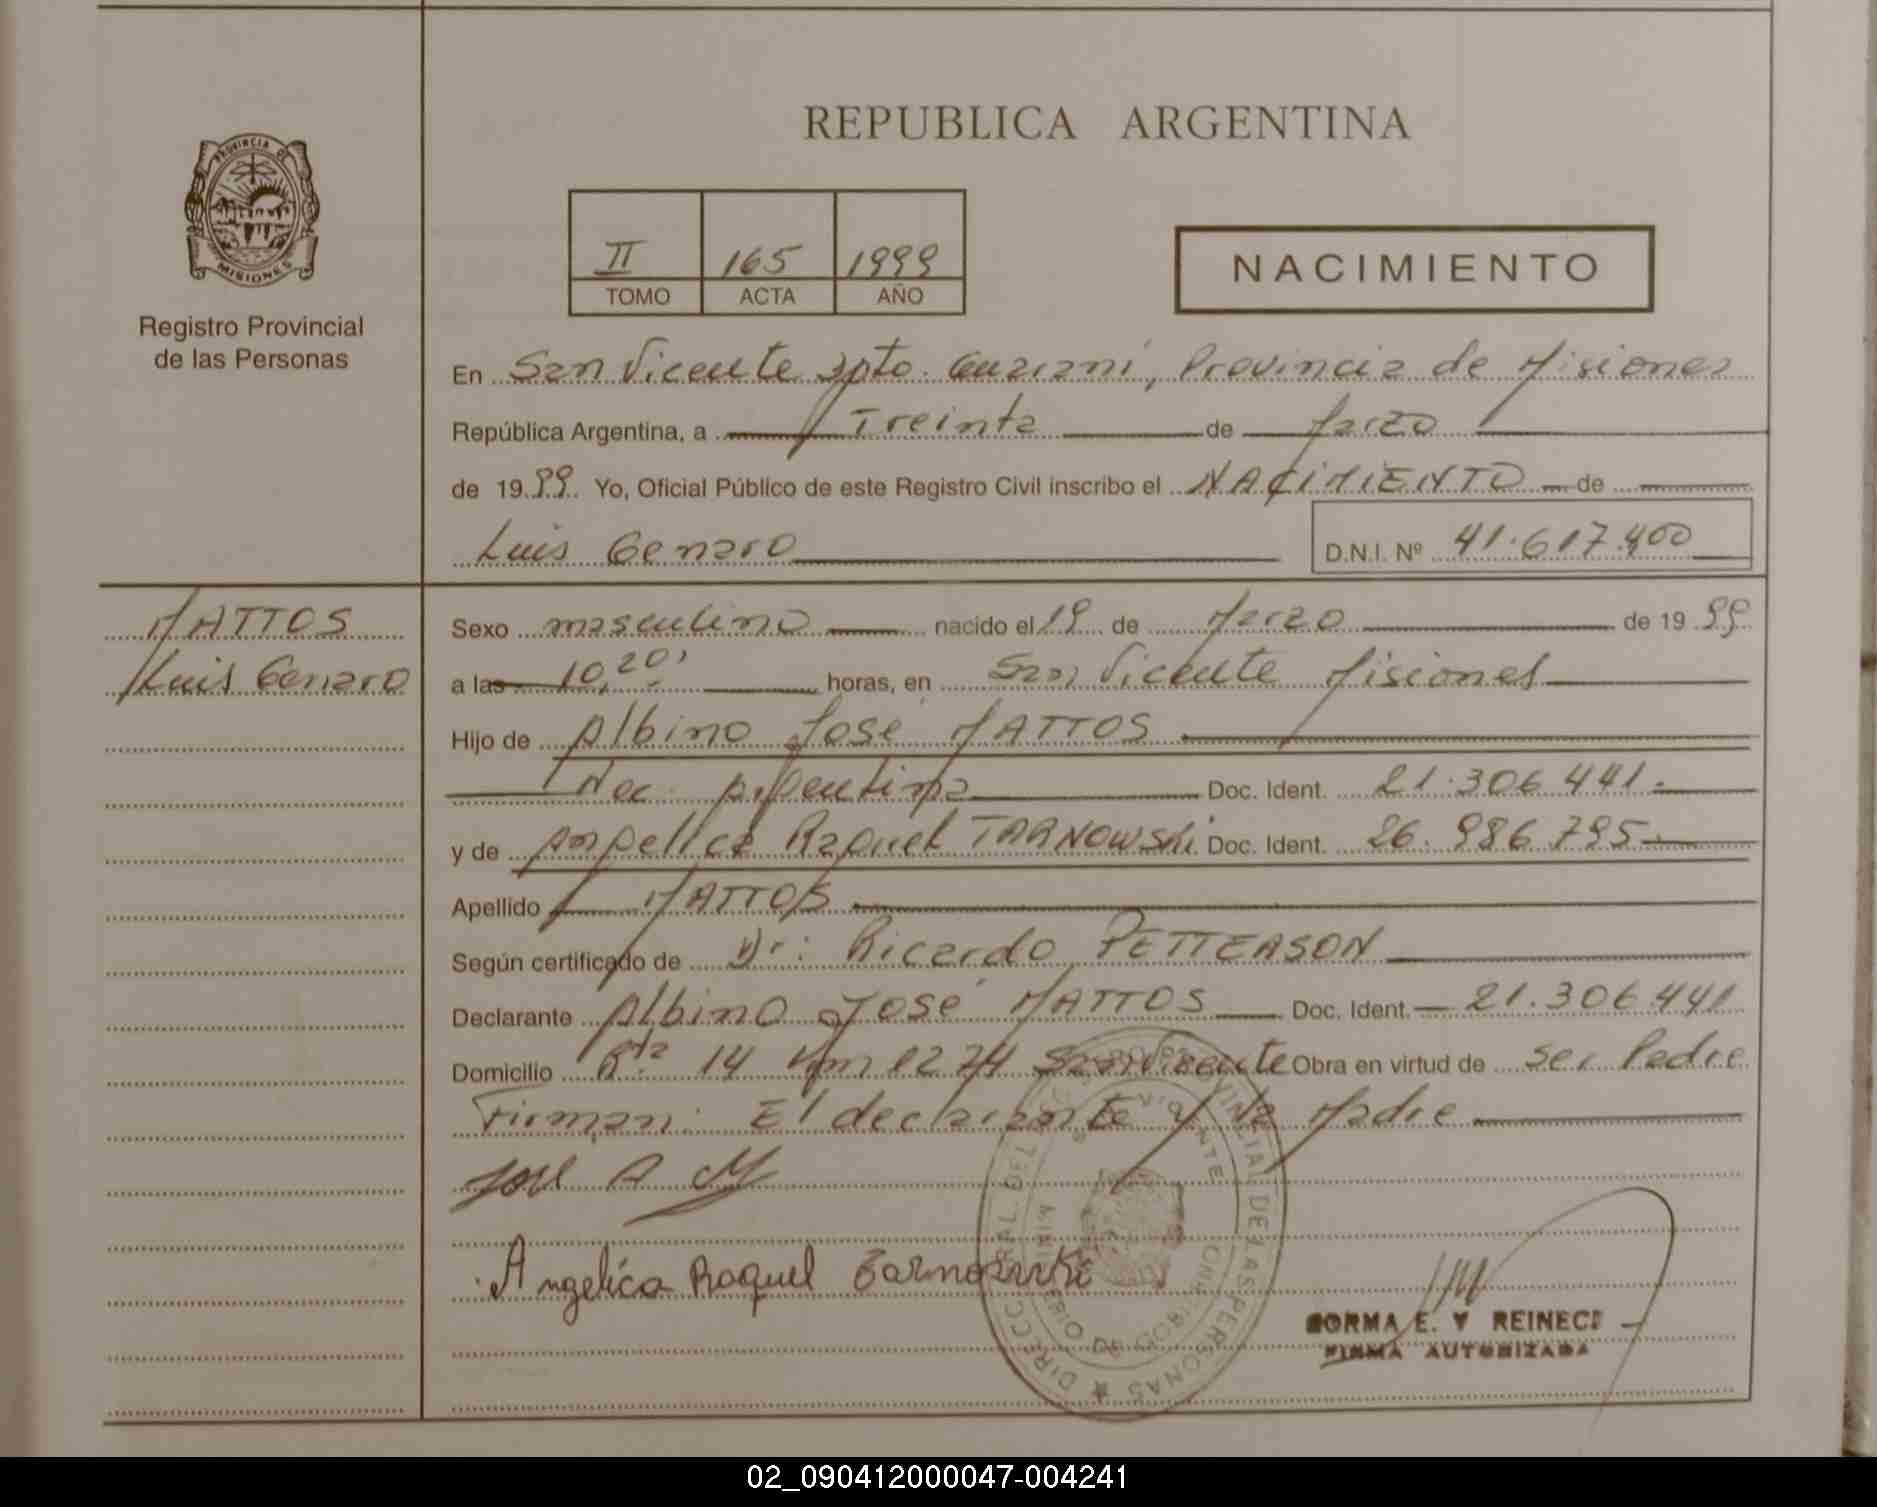 REPUBLICA ARGENTINA
PROVINCIA DE
MISIONES
Registro Provincial
de las Personas
II 165 1999
TOMO ACTA AÑO
NACIMIENTO
En San Vicente Dpto. Guaraní, Provincia de Misiones
República Argentina, a Treinta de Marzo
de 1999 Yo, Oficial Público de este Registro Civil inscribo el NACIMIENTO de
Luis Genaro D.N.I. Nº 41.617.400
MATTOS
Luis Genaro
Sexo masculino nacido el 19 de Marzo de 1999
a las 10,20' horas, en San Vicente Misiones
Hijo de Albino José MATTOS
Nac. Argentina Doc. Ident. 21.306.441.-
y de Angelica Raquel TARNOWSki Doc. Ident. 26.986.795.-
Apellido MATTOS
Según certificado de Dr: Ricardo PETTERSON
Declarante Albino José MATTOS Doc. Ident. 21.306.441
Domicilio Rta 14 Km 1274 San Vicente Obra en virtud de ser Padre
Firman: El declarante y la Madre
José A M
Angelica Raquel Tarnowski
NORMA E. V REINECK
FIRMA AUTORIZADA
PROVINCIAL DE LAS PERSONAS ★
MINISTERIO DE GOBIERNO
02_090412000047-004241